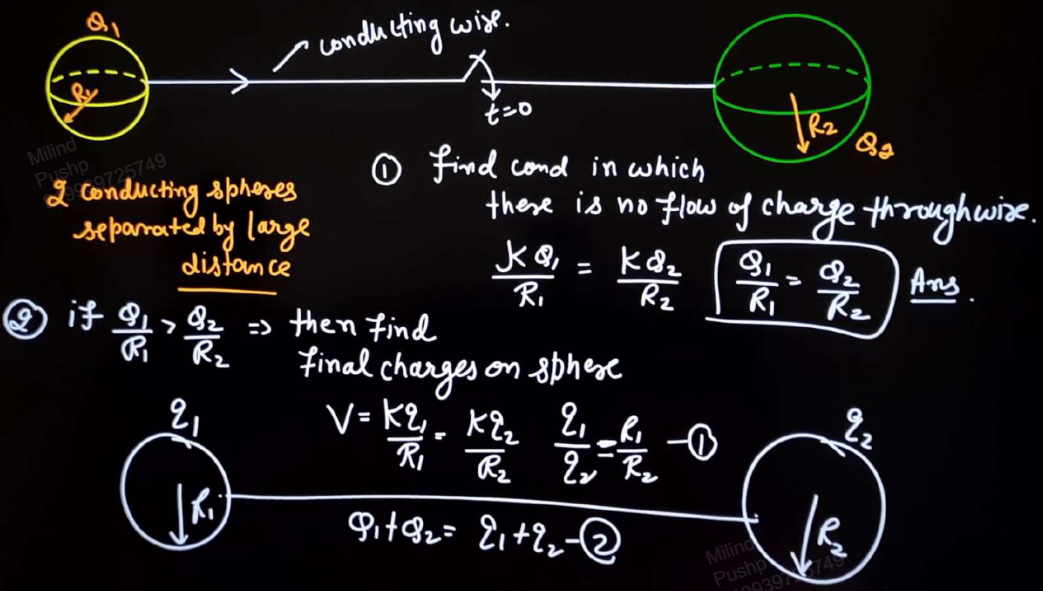 Q₁
conducting wire.
R₁
t=0
R₂
Q₂
Milind
Pushp
9939725749
2 conducting spheres
separated by large
distance
① find cond in which
there is no flow of charge through wire.
KQ₁/R₁ = KQ₂/R₂ Q₁/R₁ = Q₂/R₂ Ans.
② if Q₁/R₁ > Q₂/R₂ => then find
final charges on sphere
q₁
V = Kq₁/R₁ = Kq₂/R₂ q₁/q₂ = R₁/R₂ -①
q₂
R₁
Q₁+Q₂ = q₁+q₂ -②
R₂
Milind
Pushp